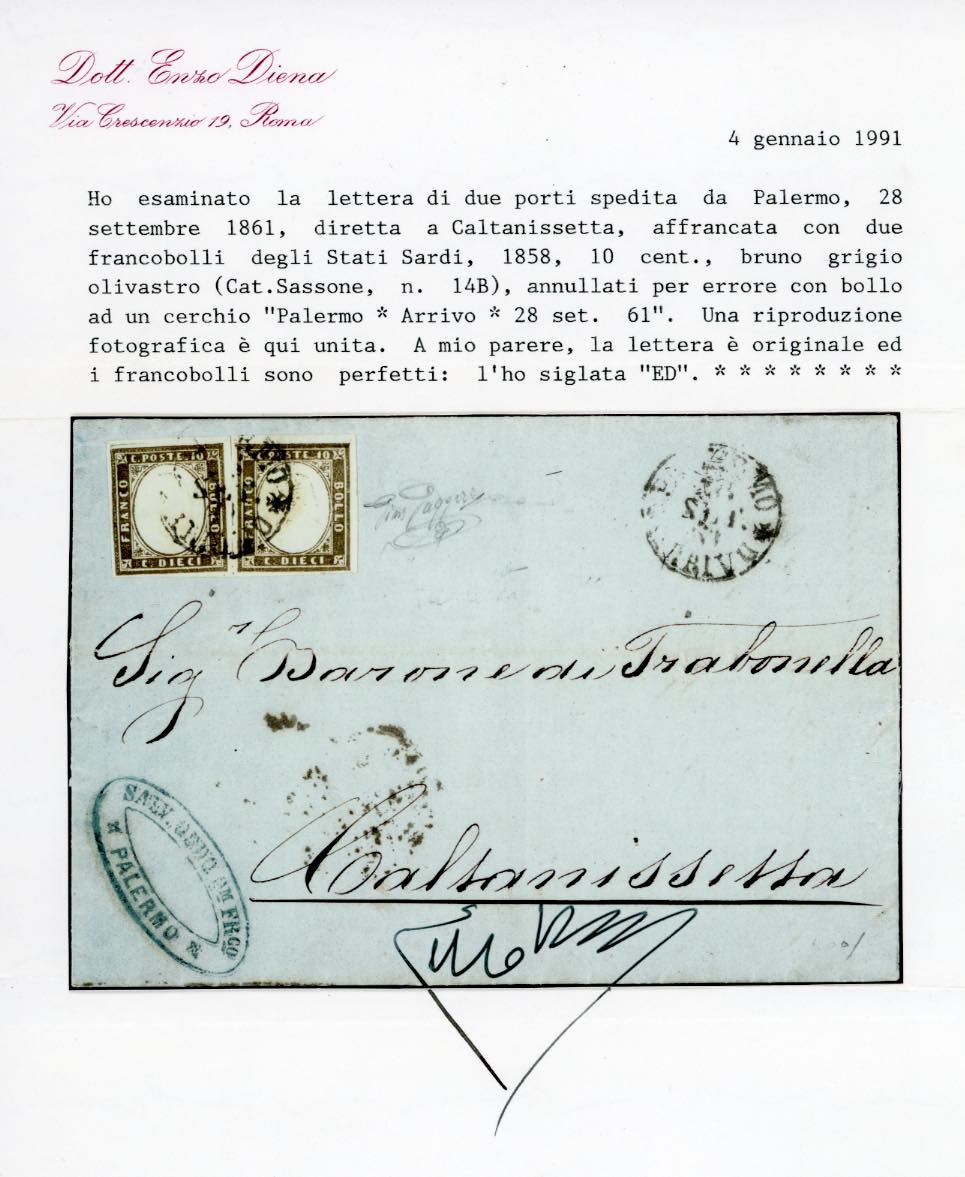 Dott. Enzo Diena
Via Crescenzio 19, Roma
4 gennaio 1991
Ho esaminato la lettera di due porti spedita da Palermo, 28
settembre 1861, diretta a Caltanissetta, affrancata con due
francobolli degli Stati Sardi, 1858, 10 cent., bruno grigio
olivastro (Cat.Sassone, n. 14B), annullati per errore con bollo
ad un cerchio "Palermo * Arrivo * 28 set. 61". Una riproduzione
fotografica è qui unita. A mio parere, la lettera è originale ed
i francobolli sono perfetti: l'ho siglata "ED". * * * * * * * *
C. POSTE 10
FRANCO
BOLLO
C. DIECI
C. POSTE 10
FRANCO
BOLLO
C. DIECI
PALERMO
SET.
ARRIVO
Sig.r Barone di Trabonella
Caltanissetta
SALV.
PALERMO